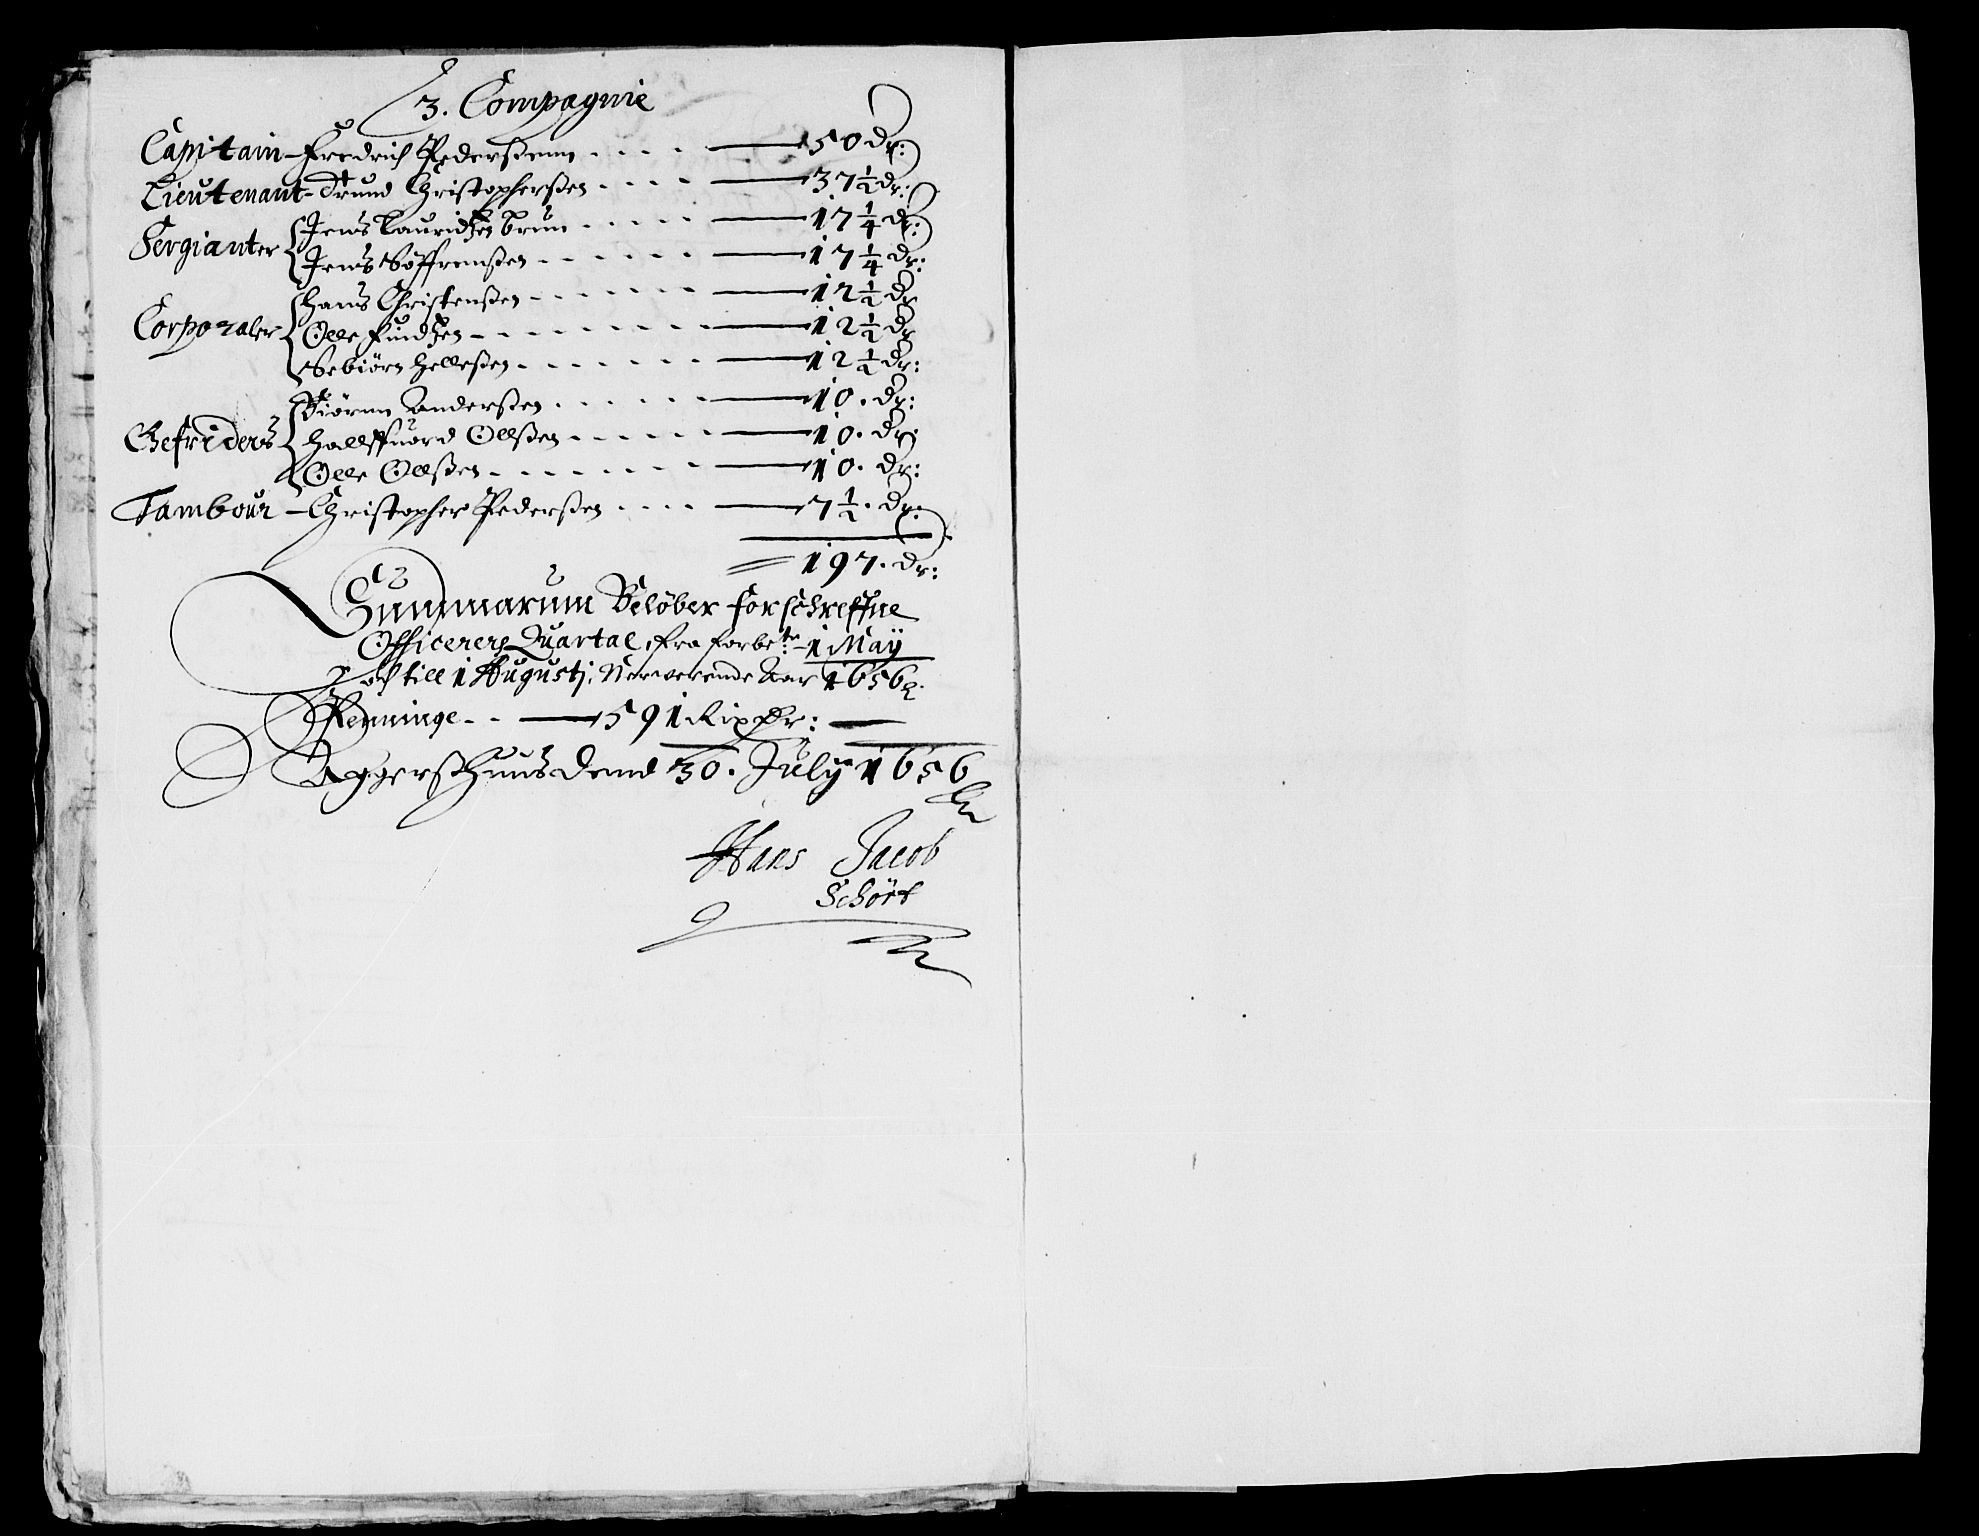 3. Compagnie
Capitain - Fredrich Pederßenn . . . . — 50 Dr:
Lieutenant - Trund Christopherßen . . . . — 37 1/2 Dr:
Sergianter { Jens Lauridtzen Brun . . . . — 17 1/4 Dr:
Jens Søffrenßen . . . . . — 17 1/4 Dr:
Corporaler { Hans Christenßen . . . . . — 12 1/2 Dr
Olle Findtzen . . . . . . — 12 1/2 Dr
Sebiørn Helleßen . . . . . — 12 1/2 Dr:
Gefriders { Biørnn Anderßen . . . . . — 10. Dr:
Hallffuord Olßen . . . . . — 10. Dr:
Olle Olßen . . . . . . — 10. Dr:
Tambour - Christopher Pederßen . . . . — 7 1/2. Dr:
197. Dr:
Summarum Beløber forschreffne
Officerers Quartal, fra forbe:te 1 May
och till 1 Augustj, Nerwerende Aar 1656
Penninge - - — 591 Rix Dr:
Aggerßhuus dend 30. July 1656
Hans Jacob
Schört